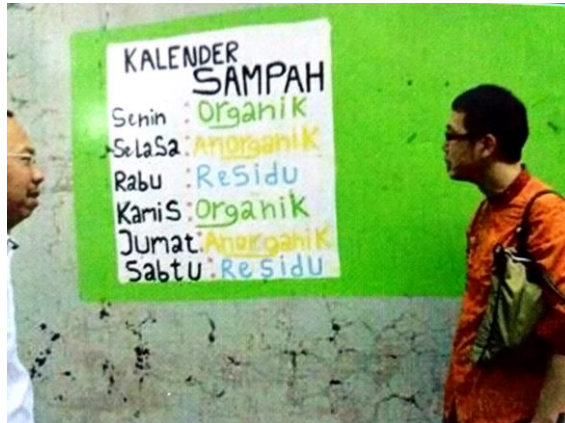 KALENDER
SAMPAH
Senin : Organik
SeLaSa : Anorganik
Rabu : ReSidu
KamiS : Organik
Jumat : Anorganik
Sabtu : ReSidu